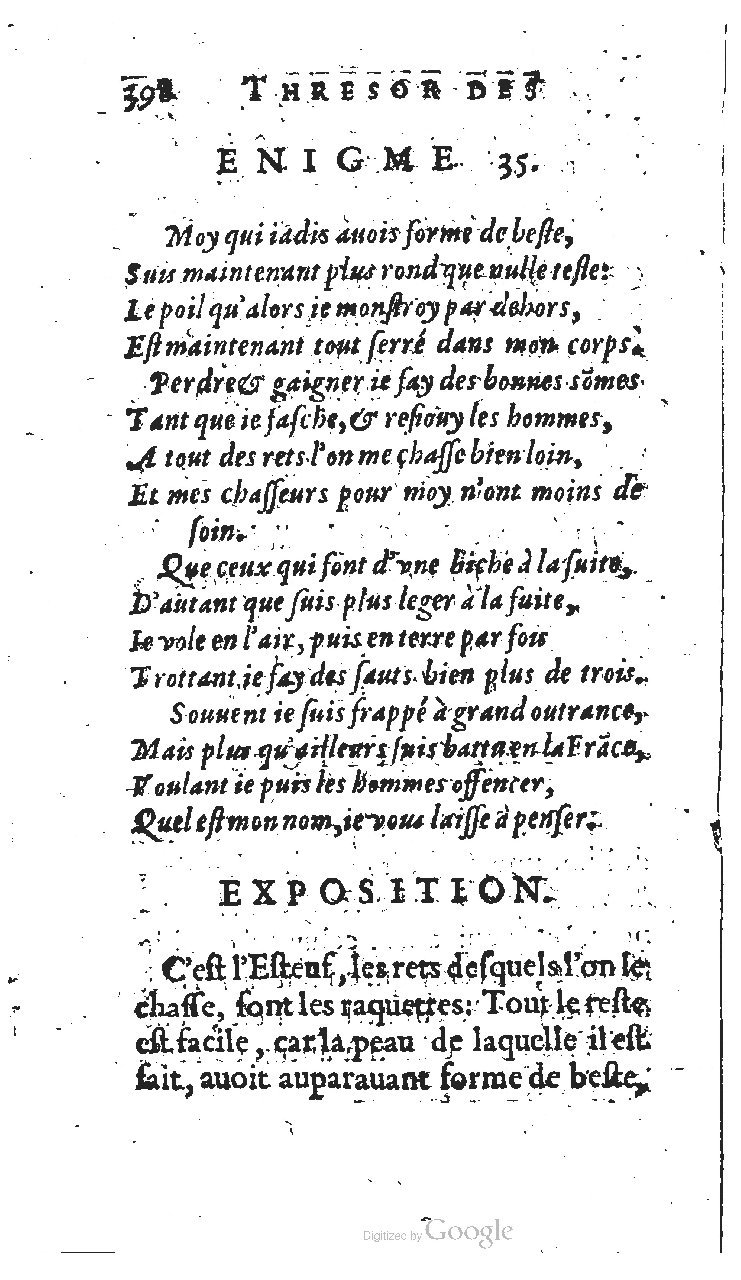 392 THRESOR DES
ENIGME 35.
Moy qui iadis auois forme de beste,
Suis maintenant plus rond que nulle teste:
Le poil qu'alors ie monstroy par dehors,
Est maintenant tout serré dans mon corps.
Perdre & gaigner ie fay des bonnes sõmes
Tant que ie fasche, & resiouy les hommes,
A tout des rets l'on me chasse bien loin,
Et mes chasseurs pour moy n'ont moins de
soin.
Que ceux qui sont d'vne Biche à la suite,
D'autant que suis plus leger à la fuite,
Ie vole en l'air, puis en terre par fois
Trottant ie fay des sauts bien plus de trois.
Souuent ie suis frappé à grand outrance,
Mais plus qu'ailleurs suis battu en la Frãce,
Voulant ie puis les hommes offencer,
Quel est mon nom, ie vous laisse à penser.
EXPOSITION.
C'est l'Esteuf, les rets desquels l'on le
chasse, sont les raquettes: Tout le reste
est facile, car la peau de laquelle il est
fait, auoit auparauant forme de beste,
Digitized by Google